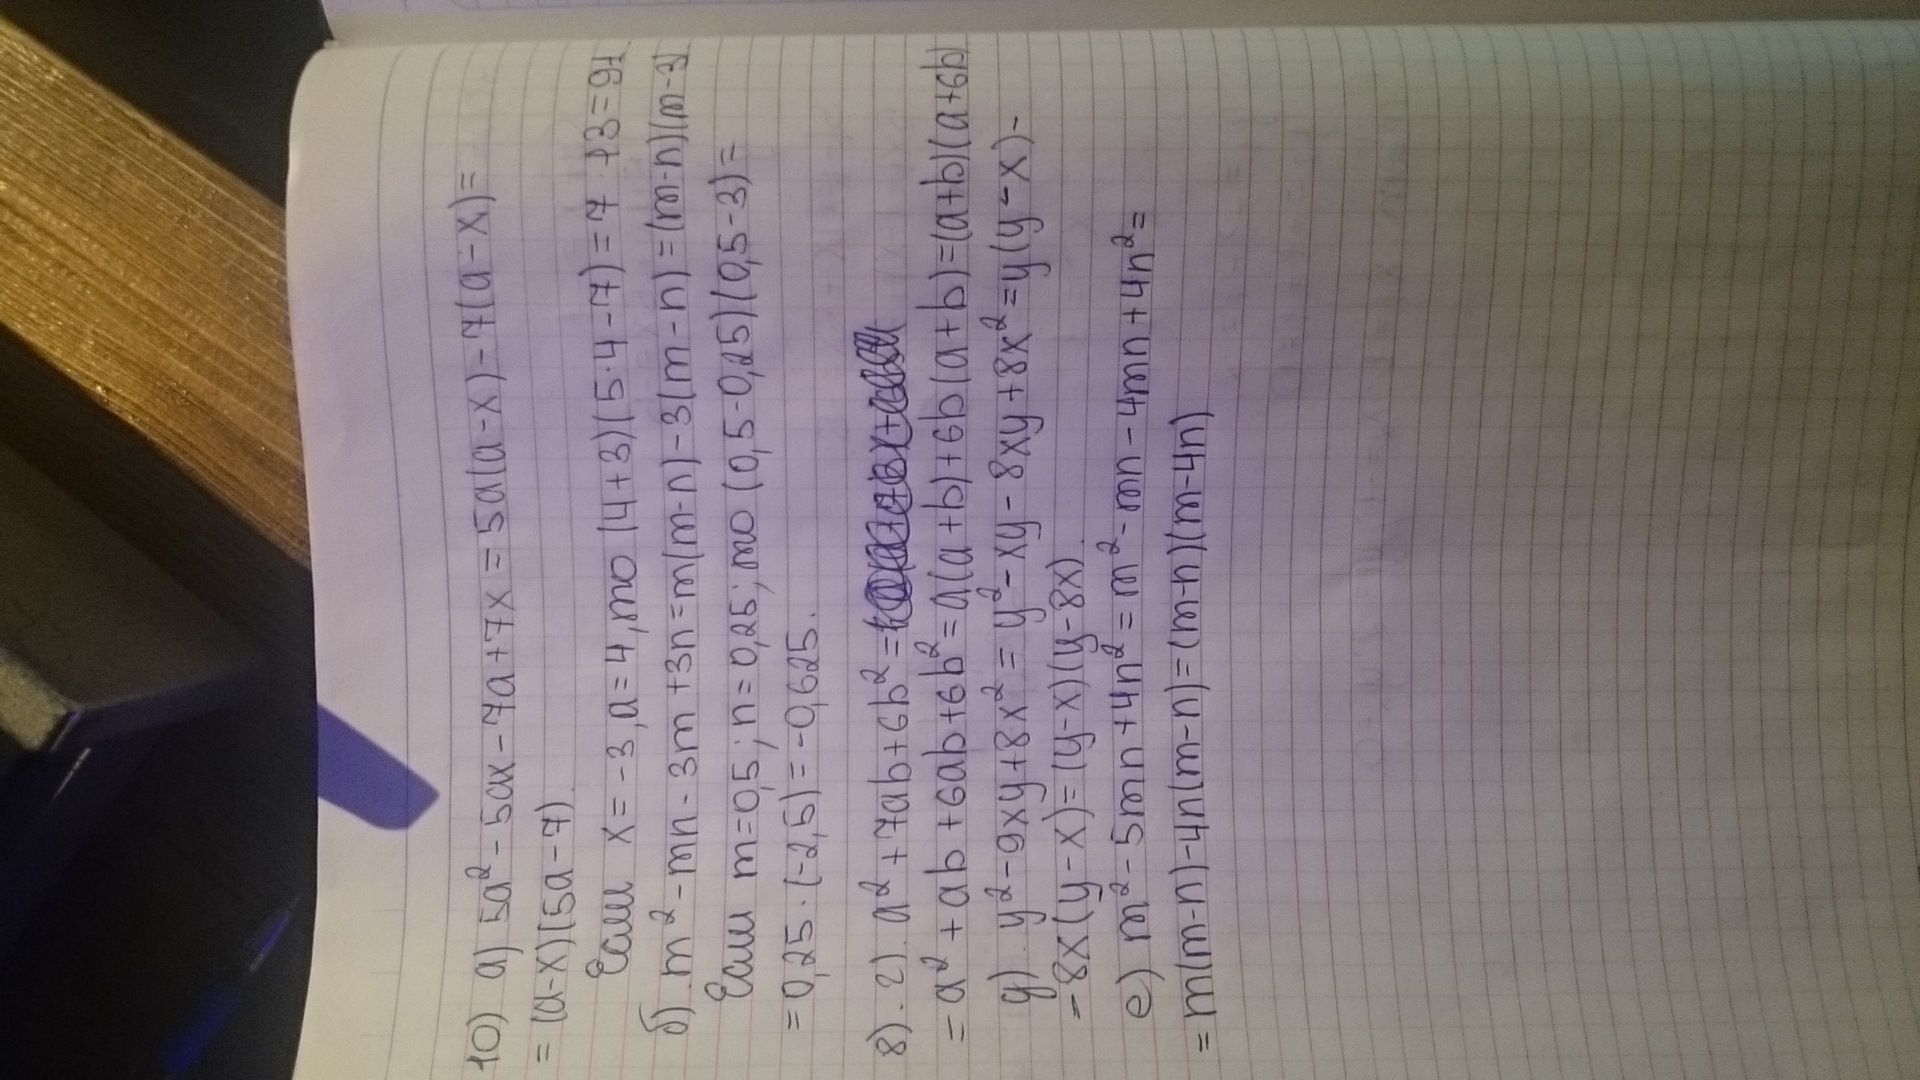 10) а) 5a² - 5ax - 7a + 7x = 5a(a - x) - 7(a - x) =
= (a - x)(5a - 7)
Если x = -3, a = 4, то (4 + 3)(5·4 - 7) = 7 · 13 = 91
б). m² - mn - 3m + 3n = m(m - n) - 3(m - n) = (m - n)(m - 3)
Если m = 0,5; n = 0,25; то (0,5 - 0,25)(0,5 - 3) =
= 0,25 · (-2,5) = -0,625.
8). г). a² + 7ab + 6b² =
= a² + ab + 6ab + 6b² = a(a + b) + 6b(a + b) = (a + b)(a + 6b)
д). y² - 9xy + 8x² = y² - xy - 8xy + 8x² = y(y - x) -
- 8x(y - x) = (y - x)(y - 8x).
е) m² - 5mn + 4n² = m² - mn - 4mn + 4n² =
= m(m - n) - 4n(m - n) = (m - n)(m - 4n)